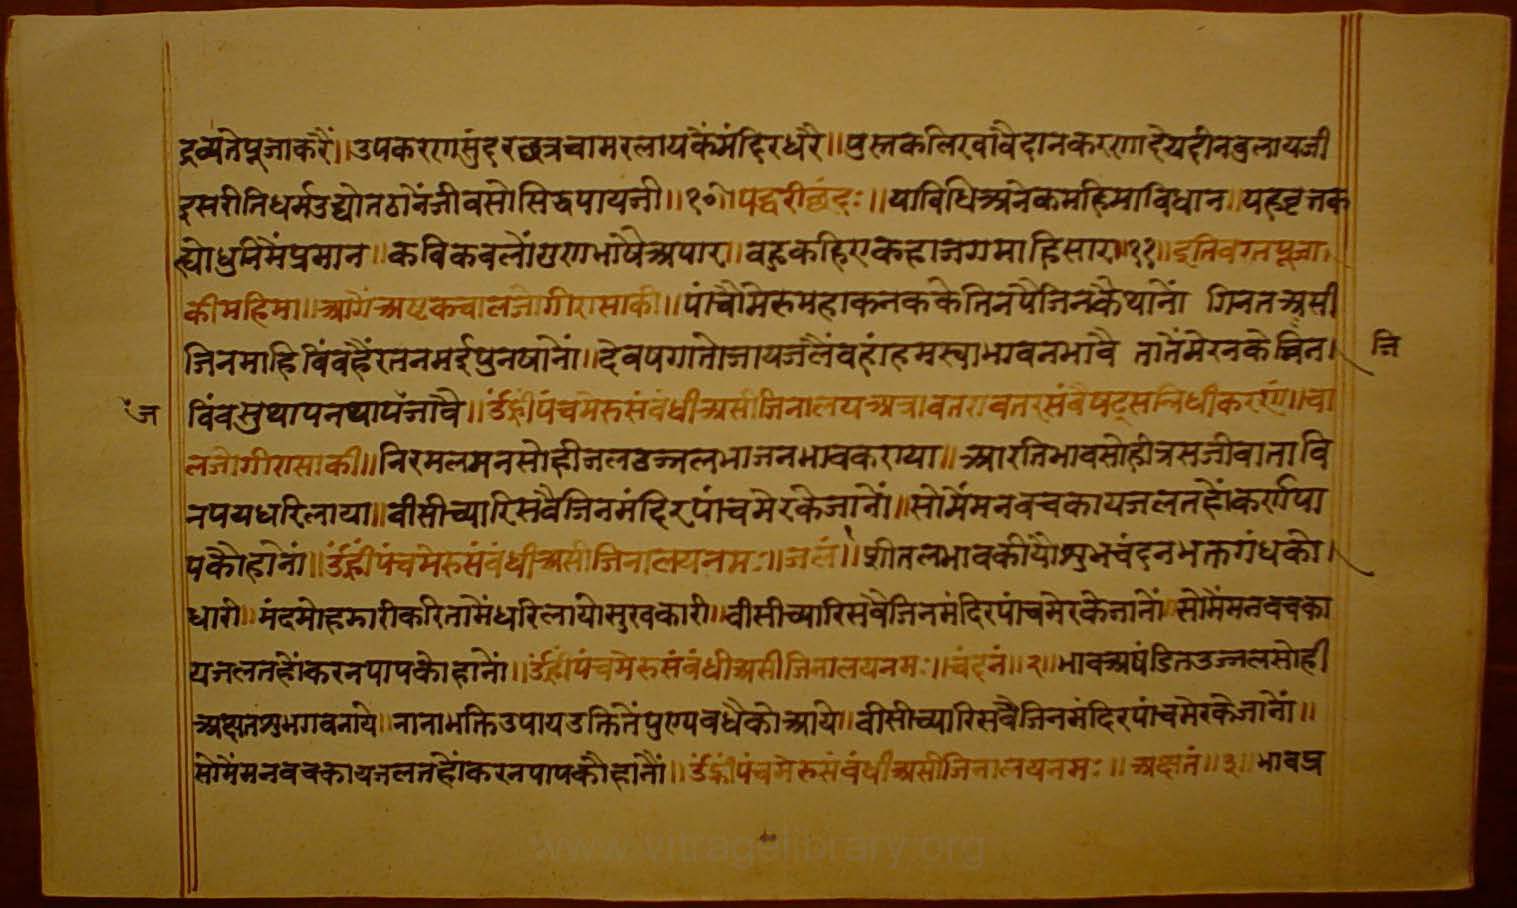 द्रव्यतेपूजाकरैं॥उपकरणसुंदरछत्रचामरलायकैमंदिरधरै॥पुस्तकलिखांवैदानकरणादेयदीनबुलायजी
इसरीतिधर्मउद्योतठांनेंजीवसोसिद्धपायजी॥१०॥पद्धरीछंदः॥याविधिअनेकमहिमाविधान॥यहव्रतक
ह्योधुनिमेंप्रमान॥कविकबलोंगुणभाषैअपार॥वहुकहिएकहाजगमाहिसार॥११॥इतिवरतपूजा
कीमहिमा॥आगेंअष्टकचालजोगीरासाकी॥पांचौमेरुमहाकनककेतिनपैजिनकैथानों गिनतअसी
जिनमाहिविंवहैंरतनमईपुनषानों॥देवषगातोजायजजैंवहांहमस्वाभावनभावै तातेंमेरनकेजिन
विंवसुथापनथापंजावै॥ॐह्रींपंचमेरुसंवंधीअसीजिनालयअत्रावतरावतरसंवैषट्सन्निधीकरणं॥चा
लजोगीरासाकी॥निरमलमनसोहीजलउज्जलभाजनभावकराया॥आरतिभावसोहीत्रसजीवातावि
नपयधरिलाया॥वीसीच्यारिसवैजिनमंदिरपांचमेरकेजानों॥सोमैंमनवचकायजजतहोंकरणपा
पकौहानों॥ॐह्रींपंचमेरुसंवंधीअसीजिनालयनमः॥जलं॥शीतलभावकीयौशुभचंदनभक्तगंधको
धारी॥मंदमोहझारीकरितामेंधरिलायोसुखकारी॥वीसीच्यारिसवैजिनमंदिरपांचमेरकेजानों॥सोमैंमनवचका
यजजतहोंकरनपापकोहानों॥ॐह्रींपंचमेरुसंवंधीअसीजिनालयनमः॥चंदनं॥२॥भावअषंडितउज्जलसोही
अक्षतशुभगवनाये॥नानाभक्तिउपायउक्तितेंपुण्यवधैकोआये॥वीसीच्यारिसवैजिनमंदिरपांचमेरकेजानों॥
सोमैंमनवचकायजजतहोंकरनपापकौहानों॥ॐह्रींपंचमेरुसंवंधीअसीजिनालयनमः॥अक्षतं॥३॥भावप्र
जि
ज
www.vitragelibrary.org